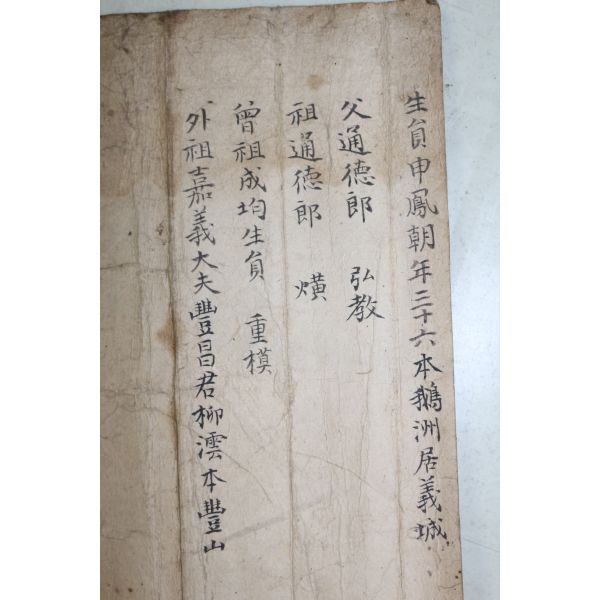 生員申鳳朝年三十六本鵝洲居義城
父通德郎 弘敎
祖通德郎 熿
曾祖成均生員 重模
外祖嘉義大夫豐昌君柳澐本豐山